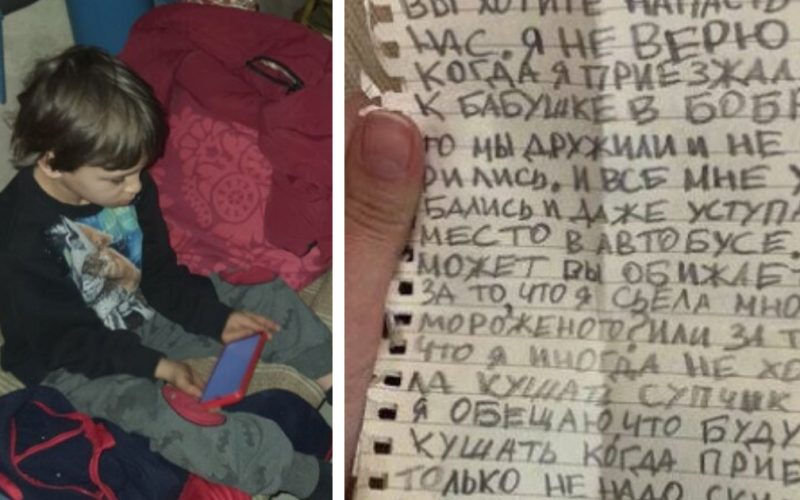 ВЫ ХОТИТЕ НАПАСТЬ
НАС. Я НЕ ВЕРЮ
КОГДА Я ПРИЕЗЖАЛ
К БАБУШКЕ В БОБР
ТО МЫ ДРУЖИЛИ И НЕ
РИЛИСЬ. И ВСЕ МНЕ У
БАЛИСЬ И ДАЖЕ УСТУПА
МЕСТО В АВТОБУСЕ.
МОЖЕТ ВЫ ОБИЖАЕТ
ЗА ТО, ЧТО Я СЬЕЛА МНО
МОРОЖЕНОГО? ИЛИ ЗА Т
ЧТО Я ИНОГДА НЕ ХО
ЛА КУШАТЬ СУПЧИК
Я ОБЕЩАЮ ЧТО БУДУ
КУШАТЬ КОГДА ПРИЕ
ТОЛЬКО НЕ НАДО